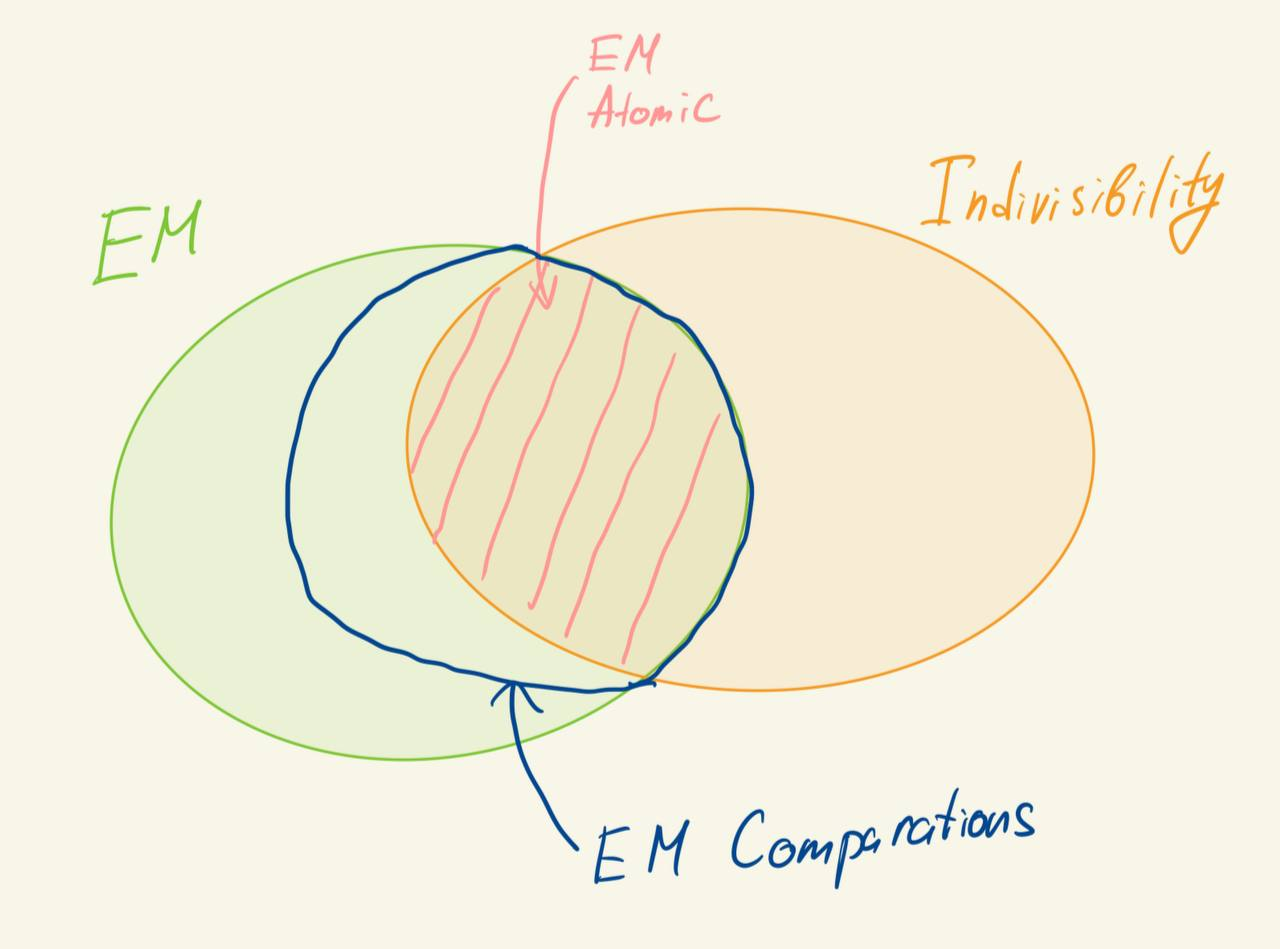 EM
Atomic
Indivisibility
EM
EM Comparations